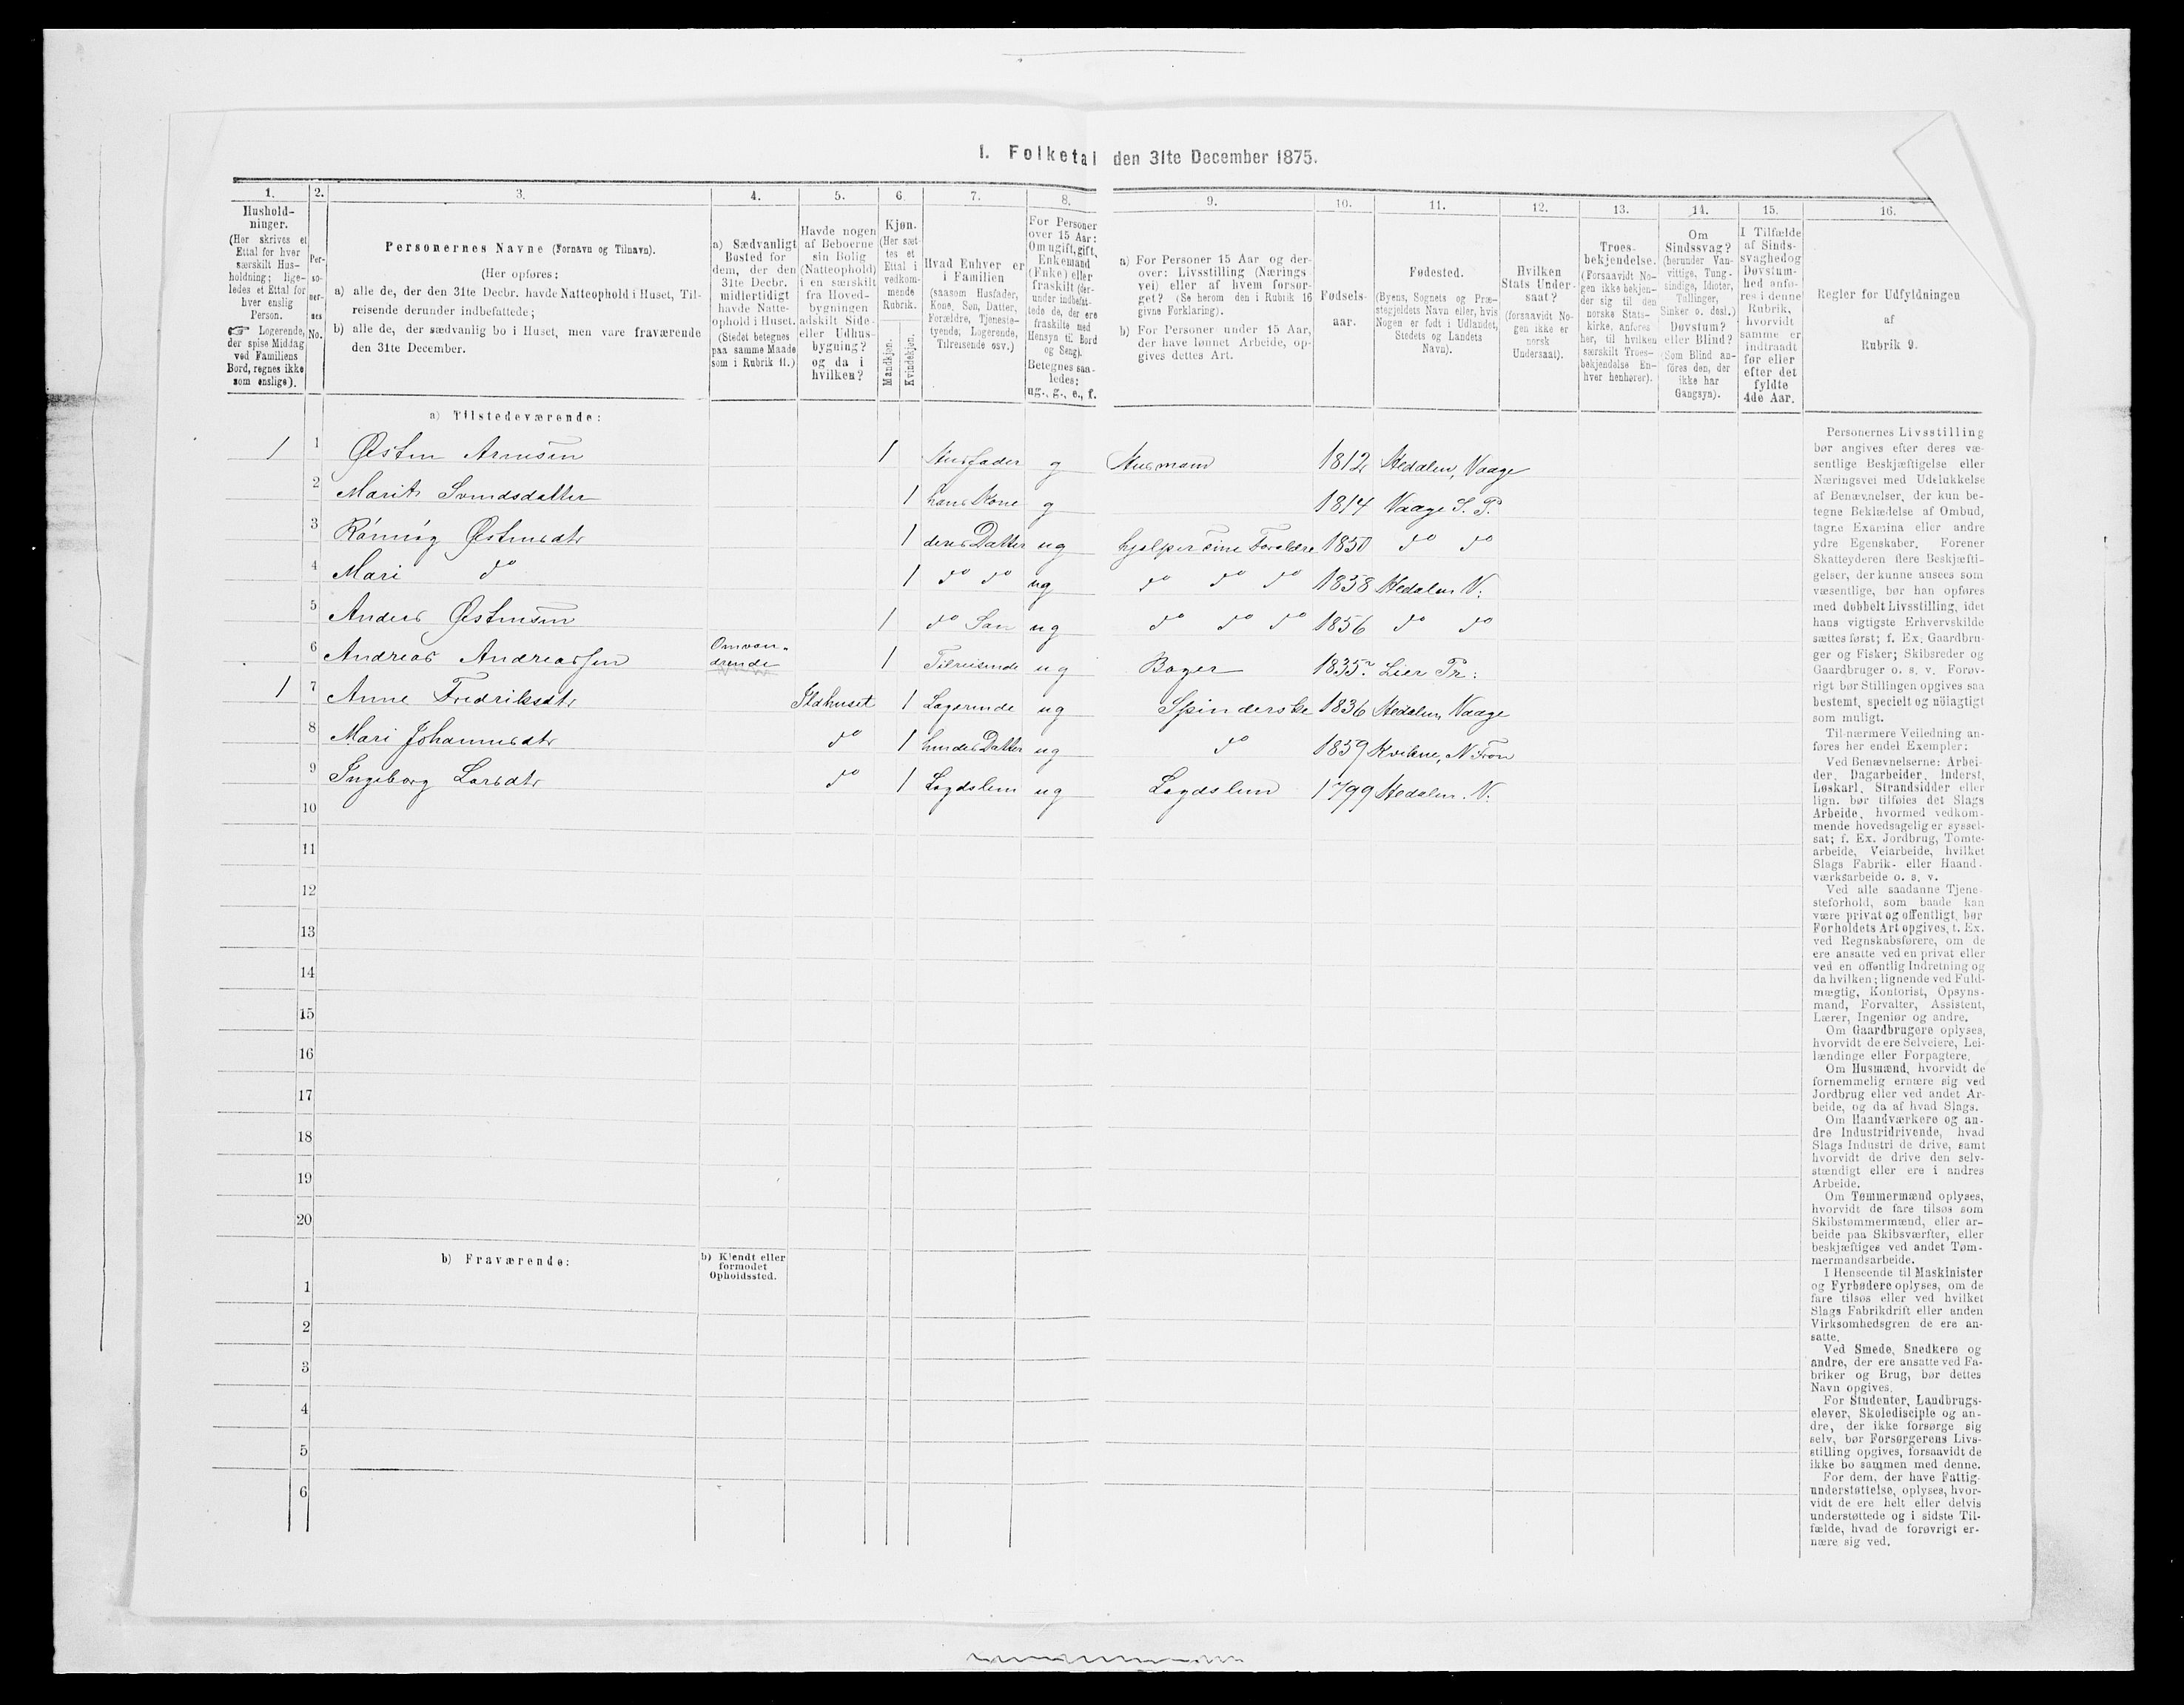 I. Folketal den 31te December 1875.
1. 2. 3. 4. 5. 6. 7. 8. 9. 10. 11. 12. 13. 14. 15. 16.
Hushold-
ninger.
(Her skrives et
Ettal for hver
særskilt Hus-
holdning; lige-
ledes et Ettal for
hver enslig
Person.
☞ Logerende,
der spise Middag
ved Familiens
Bord, regnes ikke
som enslige).
Per-
so-
ner-
nes
No.
Personernes Navne (Fornavn og Tilnavn).
(Her opføres;
a) alle de, der den 31te Decbr. havde Natteophold i Huset, Til-
reisende derunder indbefattede;
b) alle de, der sædvanlig bo i Huset, men vare fraværende
den 31te December.
a) Sædvanligt
Bosted for
dem, der den
31te Decbr.
midlertidigt
havde Natte-
ophold i Huset.
(Stedet betegnes
paa samme Maade
som i Rubrik 11.)
Havde nogen
af Beboerne
sin Bolig
(Natteophold)
i en særskilt
fra Hoved-
bygningen
adskilt Side-
eller Udhus-
bygning?
og da i
hvilken?
Kjøn.
(Her sæt-
tes et
Ettal i
vedkom-
mende
Rubrik.
Mandkjøn.
Kvindekjøn.
Hvad Enhver er
i Familien
(saasom Husfader,
Kone, Søn, Datter,
Forældre, Tjeneste-
tyende, Logerende,
Tilreisende osv.)
For Personer
over 15 Aar:
Om ugift, gift,
Enkemand
(Enke) eller
fraskilt (der-
under indbefat-
tede de, der ere
fraskilte med
Hensyn til Bord
og Seng).
Betegnes saa-
ledes:
ug., g., e., f.
a) For Personer 15 Aar og der-
over: Livsstilling (Nærings
vei) eller af hvem forsør-
get? (Se herom den i Rubrik 16
givne Forklaring).
b) For Personer under 15 Aar,
der have lønnet Arbeide, op-
gives dettes Art.
Fødsels-
aar.
Fødested.
(Byens, Sognets og Præ-
stegjeldets Navn eller, hvis
Nogen er født i Udlandet,
Stedets og Landets
Navn).
Hvilken
Stats Under-
saat?
(forsaavidt No-
gen ikke er
norsk
Undersaat).
Troes-
bekjendelse.
(Forsaavidt No-
gen ikke bekjen-
der sig til den
norske Stats-
kirke, anføres
her, til hvilken
særskilt Troes-
bekjendelse En-
hver henhører).
Om
Sindssvag?
(herunder Van-
vittige, Tung-
sindige, Idioter,
Tullinger,
Sinker o. desl.)
Døvstum?
eller Blind?
(Som Blind an-
føres den, der
ikke har
Gangsyn).
I Tilfælde
af Sinds-
svaghedog
Døvstum-
hed anfø-
res i denne
Rubrik,
hvorvidt
samme er
indtraadt
før eller
efter det
fyldte
4de Aar.
Regler for Udfyldningen
af
Rubrik 9.
a) Tilstedeværende:
1 1 Østen Arnesen 1 Husfader g Husmand 1812 Hedalen, Vaage
2 Marit Svendsdatter 1 hans Kone g 1814 Vaage S. P.
3 Rønnøg Østensdtr 1 deres Datter ug hjelper sine Foreldre 1850 do do
4 Mari do 1 do do ug do do do 1858 Hedalen V:
5 Anders Østensen 1 do Søn ug do do do 1856 do do
6 Andreas Andreassen Omvan-
drende 1 Tilreisende ug Bager 1835 Lier Pr:
1 7 Anne Fredriksdtr Ildhuset 1 Logerende ug Spinderske 1836 Hedalen, Vaage
8 Mari Johannesdtr do 1 hendes Datter ug do 1859 Kvikne, N Fron
9 Ingeborg Larsdtr do 1 Legdslem ug Legdslem 1799 Hedalen. V:
10
11
12
13
14
15
16
17
18
19
20
b) Fraværende:
b) Kjendt eller
formodet
Opholdssted.
1
2
3
4
5
6
Personernes Livsstilling
bør angives efter deres væ-
sentlige Beskjæftigelse eller
Næringsvei med Udelukkelse
af Benævnelser, der kun be-
tegne Beklædelse af Ombud,
tagne Examina eller andre
ydre Egenskaber. Forener
Skatteyderen flere Beskjæfti-
gelser, der kunne ansees som
væsentlige, bør han opføres
med dobbelt Livsstilling, idet
hans vigtigste Erhvervskilde
sættes først; f. Ex. Gaardbru-
ger og Fisker; Skibsreder og
Gaardbruger o. s. v. Forøv-
rigt bør Stillingen opgives saa
bestemt, specielt og nöiagtigt
som muligt.
Til nærmere Veiledning an-
føres her endel Exempler:
Ved Benævnelserne: Arbei-
der, Dagarbeider, Inderst,
Løskarl, Strandsidder eller
lign. bør tilføies det Slags
Arbeide, hvormed vedkom-
mende hovedsagelig er syssel-
sat; f. Ex. Jordbrug, Tømte-
arbeide, Veiarbeide, hvilket
Slags Fabrik- eller Haand-
værksarbeide o. s. v.
Ved alle saadanne Tjene-
steforhold, som baade kan
være privat og offentligt, bør
Forholdets Art opgives, t. Ex.
ved Regnskabsførere, om de
ere ansatte ved en privat eller
ved en offentlig Indretning og
da hvilken; lignende ved Fuld-
mægtig, Kontorist, Opsyns-
mand, Forvalter, Assistent,
Lærer, Ingeniør og andre.
Om Gaardbrugere oplyses,
hvorvidt de ere Selveiere, Lei-
lændinge eller Forpagtere.
Om Husmænd, hvorvidt de
fornemmelig ernære sig ved
Jordbrug eller ved andet Ar-
beide, og da af hvad Slags.
Om Haandværkere og an-
dre Industridrivende, hvad
Slags Industri de drive, samt
hvorvidt de drive den selv-
stændigt eller ere i andres
Arbeide.
Om Tømmermænd oplyses,
hvorvidt de fare tilsøs som
Skibstømmermænd, eller ar-
beide paa Skibsværfter, eller
beskjæftiges ved andet Tøm-
mermandsarbeide.
I Henseende til Maskinister
og Fyrbødere oplyses, om de
fare tilsøs eller ved hvilket
Slags Fabrikdrift eller anden
Virksomhedsgren de ere an-
satte.
Ved Smede, Snedkere og
andre, der ere ansatte ved Fa-
briker og Brug, bør dettes
Navn opgives.
For Studenter, Landbrugs-
elever, Skoledisciple og an-
dre, der ikke forsørge sig
selv, bør Forsørgerens Livs-
stilling opgives, forsaavidt de
ikke bo sammen med denne.
For dem, der have Fattig-
understøttelse, oplyses, hvor-
vidt de ere helt eller delvis
understøttede og i sidste Til-
fælde, hvad de forøvrigt er-
nære sig ved.